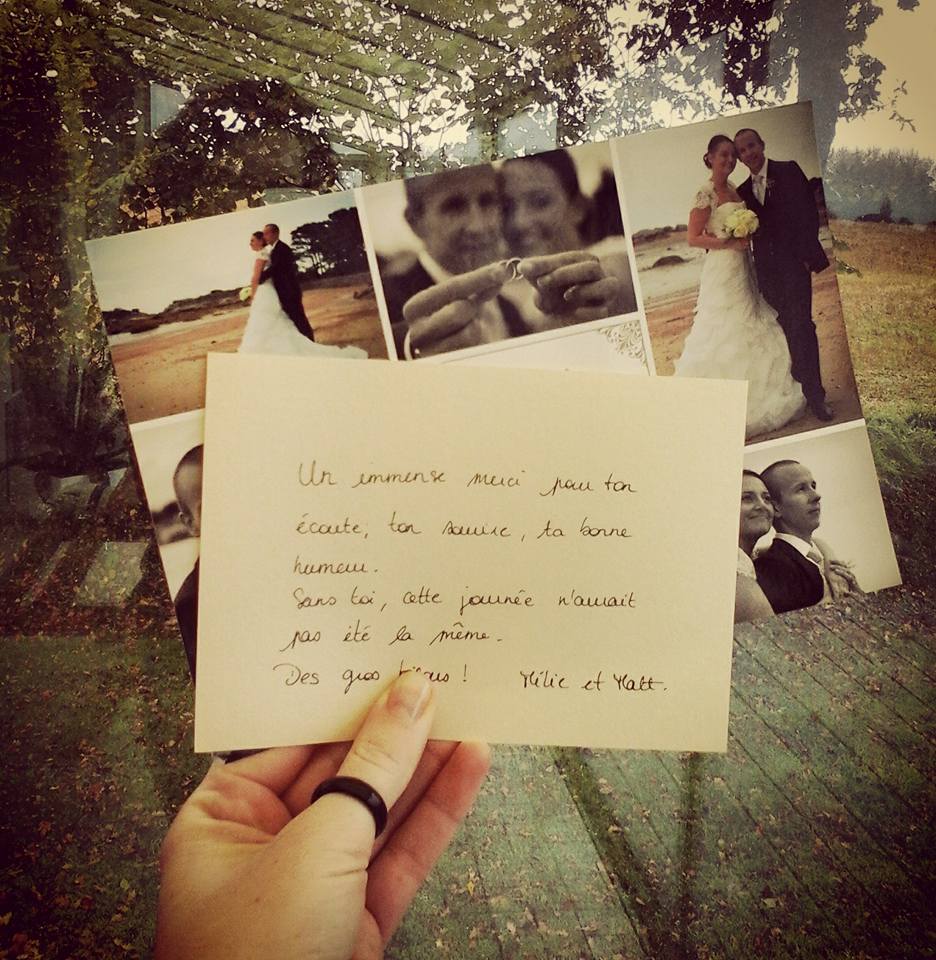 Un immense merci pour ton
écoute, ton sourire, ta bonne
humeur.
Sans toi, cette journée n'aurait
pas été la même.
Des gros bisous ! Mélie et Matt.